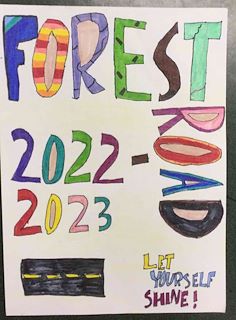 FOREST
ROAD
2022-
2023
LET
YOURSELF
SHINE!